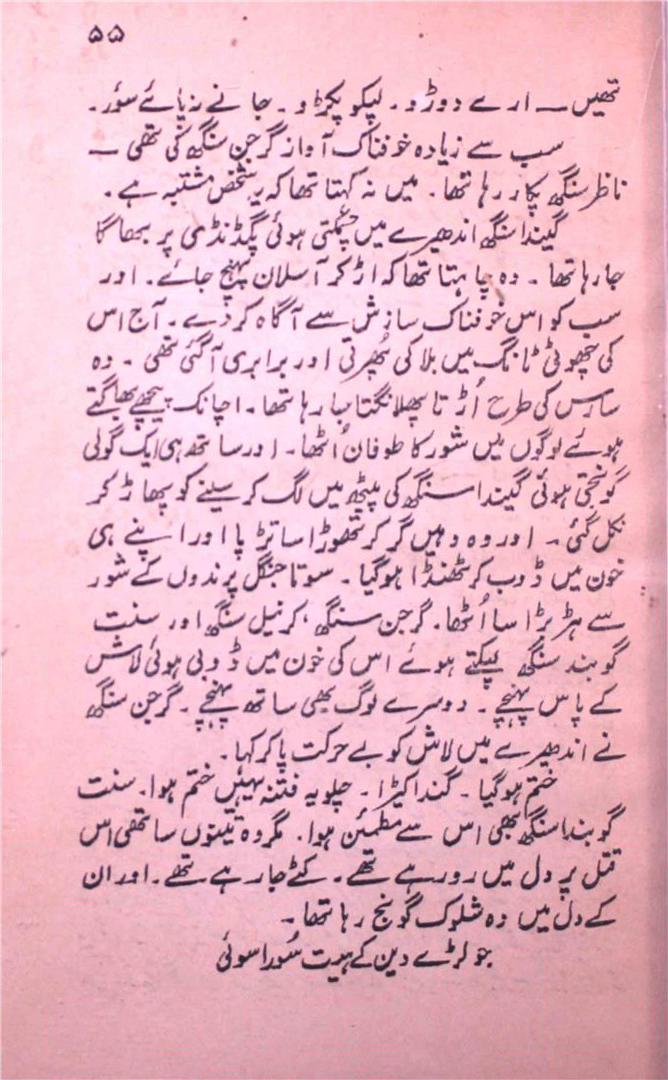 ۵۵
تھیں — ارے دوڑو۔ لپکو پکڑو۔ جانے نہ پائے سؤر۔
سب سے زیادہ خوفناک آواز گرجن سنگھ کی تھی —
ناظر سنگھ پکار رہا تھا۔ میں نہ کہتا تھا کہ یہ شخص مشتبہ ہے۔
گیندا سنگھ اندھیرے میں چمکتی ہوئی پگڈنڈی پر بھاگا
جا رہا تھا۔ وہ چاہتا تھا کہ اڑ کر آسلان پہنچ جائے۔ اور
سب کو اس خوفناک سازش سے آگاہ کر دے۔ آج اس
کی چھوٹی ٹانگ میں بلا کی پھرتی اور برابری آ گئی تھی۔ وہ
سارس کی طرح اُڑتا پھلانگتا جا رہا تھا۔ اچانک پیچھے بھاگتے
ہوئے لوگوں میں شور کا طوفان اُٹھا۔ اور ساتھ ہی ایک گولی
گونجتی ہوئی گیندا سنگھ کی پیٹھ میں لگ کر سینے کو پھاڑ کر
نکل گئی۔ اور وہ وہیں گر کر تھوڑا سا تڑپا اور اپنے ہی
خون میں ڈوب کر ٹھنڈا ہو گیا۔ سوتا جنگل پرندوں کے شور
سے ہڑبڑا سا اُٹھا۔ گرجن سنگھ، کرنیل سنگھ اور سنت
گوبند سنگھ لپکتے ہوئے اس کی خون میں ڈوبی ہوئی لاش
کے پاس پہنچے۔ دوسرے لوگ بھی ساتھ پہنچے۔ گرجن سنگھ
نے اندھیرے میں لاش کو بے حرکت پا کر کہا۔
ختم ہو گیا۔ گندا کیڑا۔ چلو یہ فتنہ یہیں ختم ہوا۔ سنت
گوبندا سنگھ بھی اس سے مطمئن ہوا۔ مگر وہ تینوں ساتھی اس
قتل پر دل میں رو رہے تھے۔ کٹے جا رہے تھے۔ اور ان
کے دل میں وہ شلوک گونج رہا تھا۔
جو لڑے دین کے ہیت سُورا سوئی